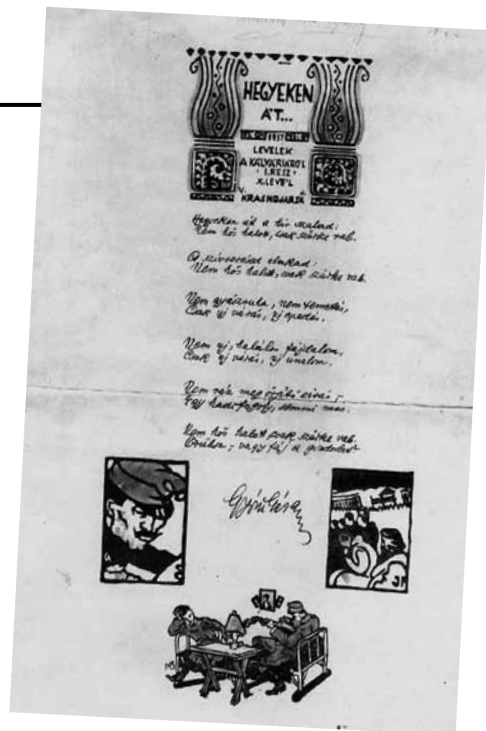 HEGYEKEN
ÁT...
1917
LEVELEK
A KÁLVÁRIÁRÓL
I. RÉSZ
X. LEVÉL
KRASNOJARSK
Hegyeken át a hír szalad:
Nem hős halott, csak szürke rab.
A szívverésed elakad:
Nem hős halott, csak szürke rab.
Nem gyászruha, nem temetés,
Csak új várás, új epedés.
Nem új, halálos fájdalom,
Csak új várás, új unalom.
Nem rá a meg sírás;
Egy hadifogoly, semmi más.
Nem hős halott csak szürke rab.
Örülsz, vagy fáj a gondolat
Gyóni Géza